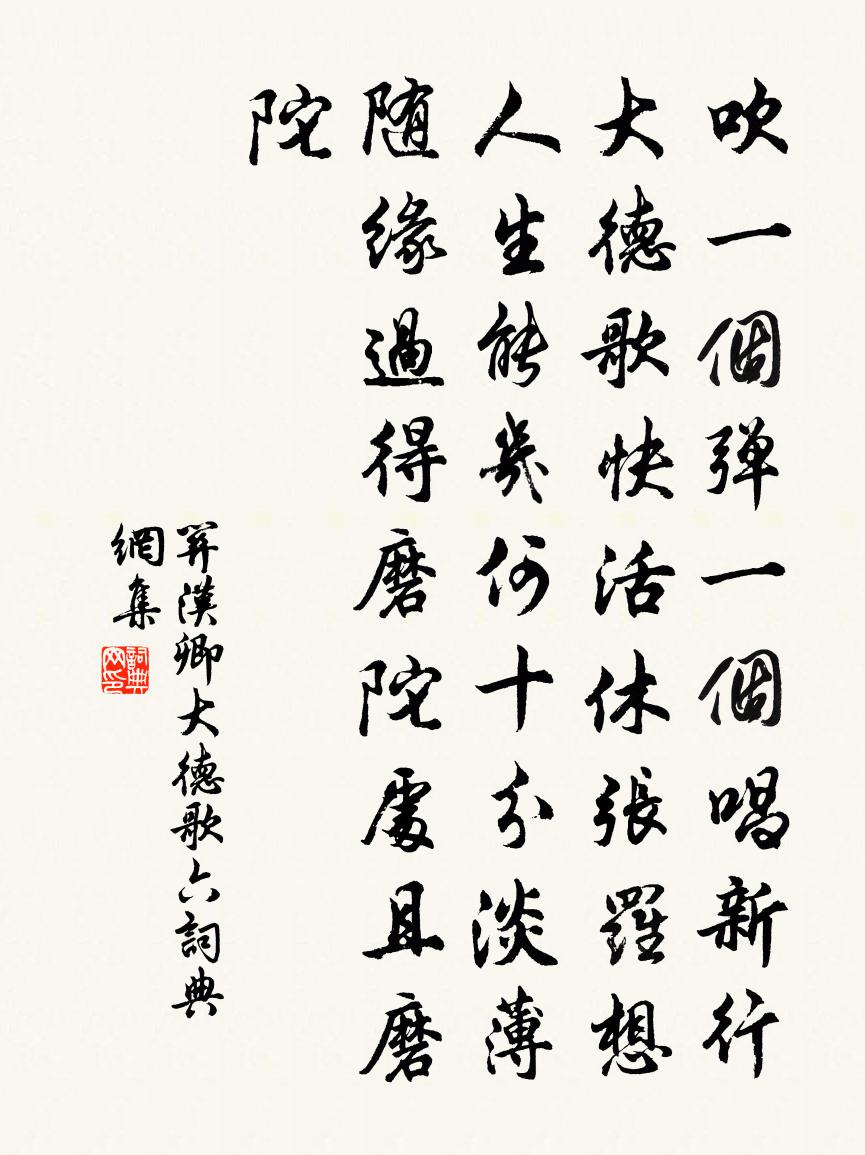 吹一個弹一個唱新行
大德歌快活休張羅想
人生能幾何十分淡薄
随缘過得磨陀處且磨
陀
関漢卿大德歌六詞典
網集
詞典
网印